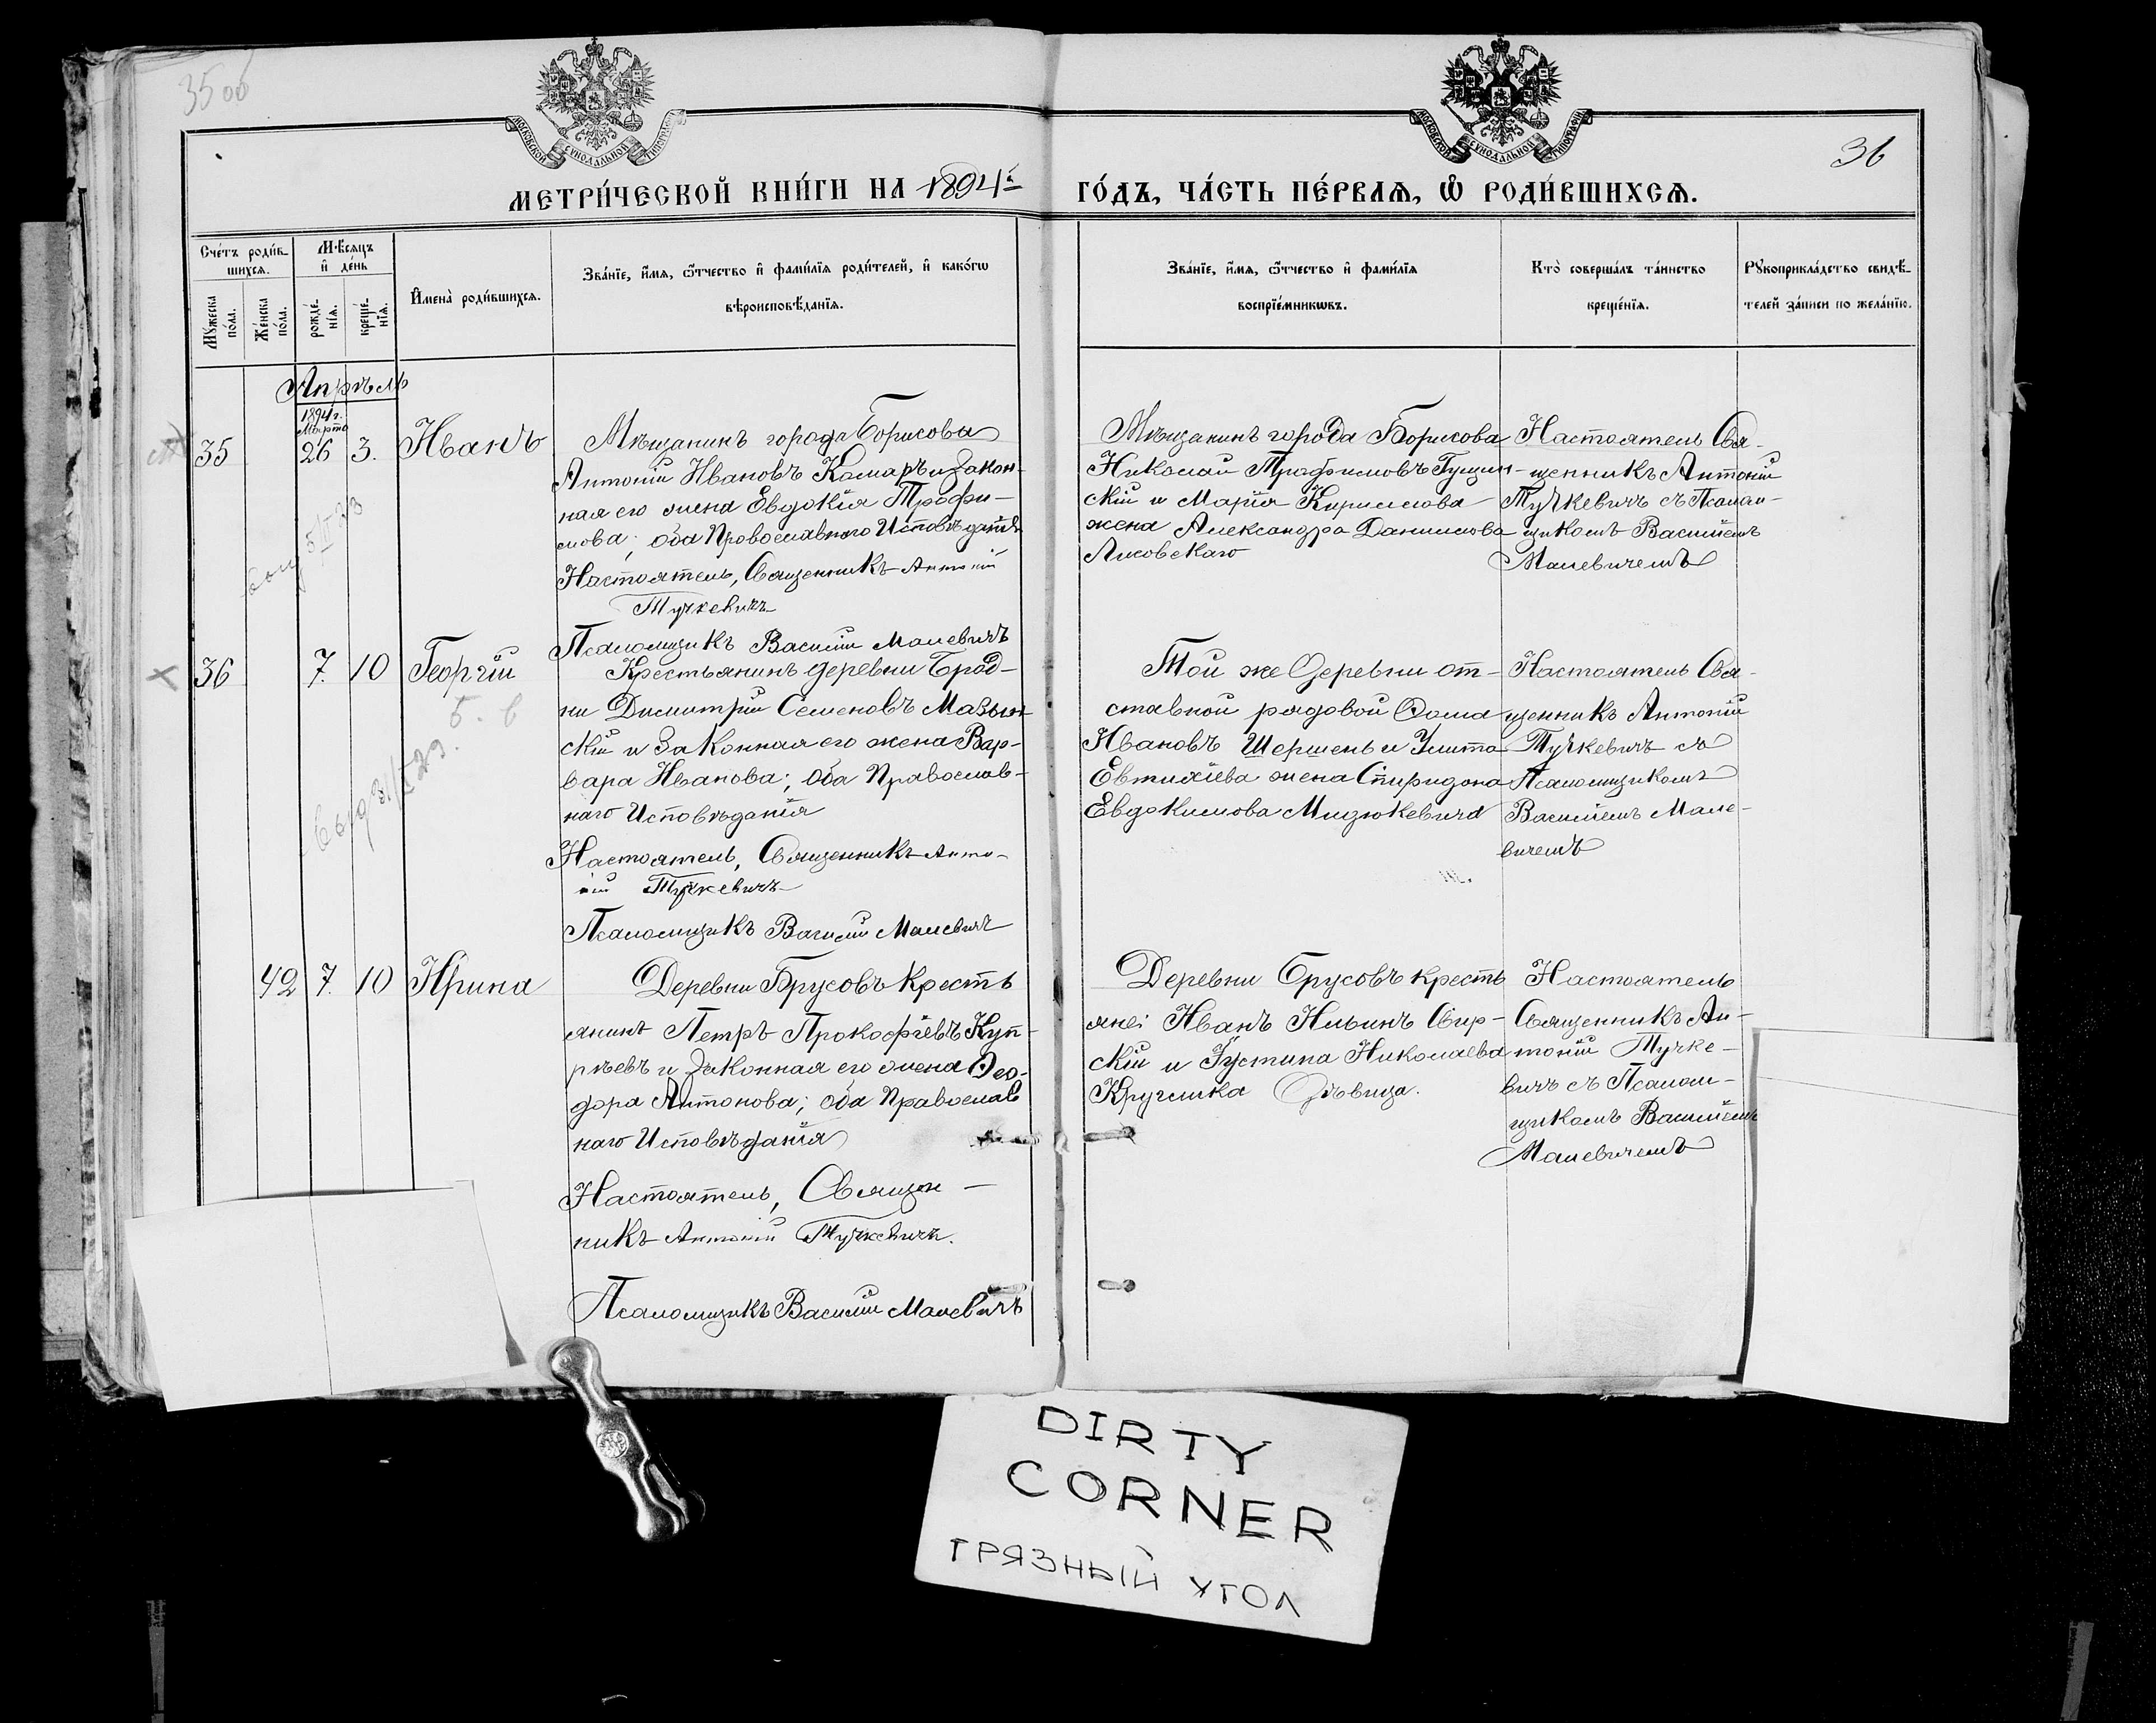 35 об
36
МОСКОВСКОЙ СѴНОДАЛЬНОЙ ТИПОГРАФІИ
МОСКОВСКОЙ СѴНОДАЛЬНОЙ ТИПОГРАФІИ
МЕТРИ́ЧЕСКОЙ КНИ́ГИ НА 1894й
ГО́ДЪ, ЧА́СТЬ ПЕ́РВАѦ, Ѽ РОДИ́ВШИХСѦ.
Сче́тъ роди́в-
шихсѧ.
Мѣсѧцъ
и҆ де́нь
Мꙋ́жеска
по́ла.
Же́нска
по́ла.
рожде́-
нїѧ.
креще́-
нїѧ.
И҆мена̀ роди́вшихсѧ.
Зва́нїе, и҆́мѧ, ѻ҆́тчество и҆ фами́лїѧ роди́телей, и҆ како́гѡ
вѣроисповѣ́данїѧ.
Зва́нїе, и҆́мѧ, ѻ҆́тчество и҆ фами́лїѧ
воспрїе́мникѡвъ.
Кто̀ соверша́лъ та́инство
креще́нїѧ.
Рꙋкоприкла́дство свидѣ́-
телей за́писи по жела́нїю.
Апрѣль
1894 г.
Марта
35 26 3. Иванъ
Мѣщанинъ города Борисова
Антоній Ивановъ Комаръ и закон-
ная его жена Евдокія Трофи-
мова; оба Православнаго Исповѣданія
Настоятель, Священникъ Антоній
Тучкевичъ
Псаломщикъ Василій Малевичъ
Мѣщанинъ города Борисова
Николай Трофимовъ Гущин-
скій и Марія Кириллова
жена Александра Данилова
Лисовскаго
Настоятель Свя-
щенникъ Антоній
Тучкевичъ съ Псалом-
щикомъ Василіемъ
Малевичемъ
36 7. 10 Георгій
Крестьянинъ деревни Брод-
ни Димитрій Семеновъ Мазын-
скій и законная его жена Вар-
вара Иванова; оба Православ-
наго Исповѣданія
Настоятель, Священникъ Анто-
ній Тучкевичъ
Псаломщикъ Василій Малевичъ
Той же деревни от-
ставной рядовой Фома
Ивановъ Шершень и Улита
Евтихіева жена Спиридона
Евдокимова Мицюкевича
Настоятель Свя-
щенникъ Антоній
Тучкевичъ съ
Псаломщикомъ
Василіемъ Мале-
вичемъ
42 7. 10 Ирина
Деревни Брусовъ кресть
янинъ Петръ Прокофіевъ Куп-
рѣевъ и законная его жена Ѳео-
дора Антонова; оба Православ
наго Исповѣданія
Настоятель, Священ-
никъ Антоній Тучкевичъ.
Псаломщикъ Василій Малевичъ
Деревни Брусовъ кресть
яне: Иванъ Ильинъ Свир-
скій и Іустина Николаева
Кручинка дѣвица.
Настоятель
Священникъ Ан-
тоній Тучке-
вичъ съ Псалом-
щикомъ Василіемъ
Малевичемъ
DIRTY
CORNER
ГРЯЗНЫЙ УГОЛ